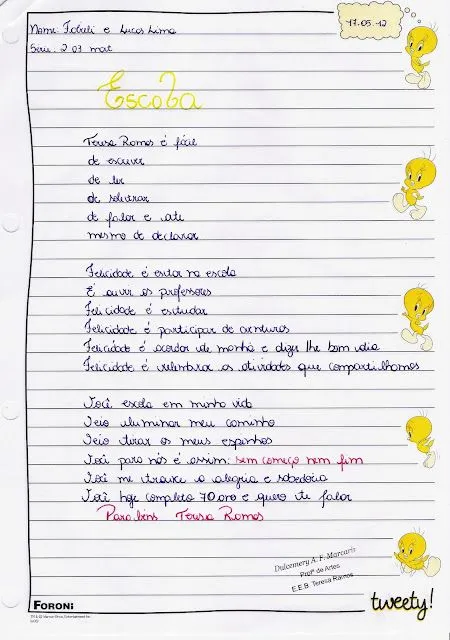 Nome: Fabieli e Lucas Lima
17.05.12
Série: 203 mat
Escola
Teresa Ramos é fácil
de escrever
de ler
de soletrar
de falar e até
mesmo de declarar
Felicidade é estar na escola
É ouvir os professores
Felicidade é estudar
Felicidade é participar de aventuras
Felicidade é acordar de manhã e dizer lhe bom dia
Felicidade é relembrar as atividades que compartilhamos
Você escola em minha vida
Veio iluminar meu caminho
Veio tirar os meus espinhos
Você para nós é assim: sem começo nem fim
Você me trouxe a alegria e sabedoria
Você hoje completa 70 ano e quero te falar
Parabéns Teresa Ramos
Dulcemery A. F. Marcaris
Profª de Artes
E.E.B. Teresa Ramos
FORONI
tweety!